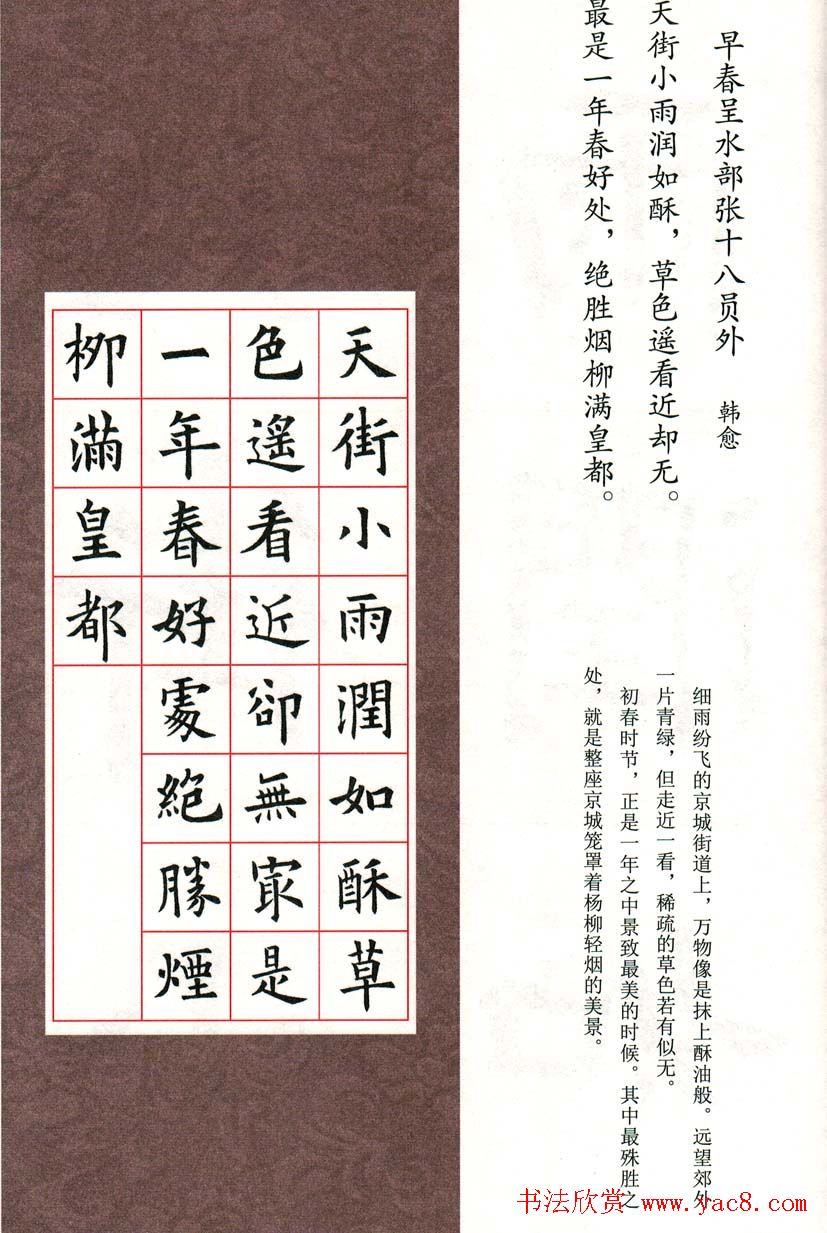 早春呈水部张十八员外 韩愈
天街小雨润如酥，草色遥看近却无。
最是一年春好处，绝胜烟柳满皇都。
细雨纷飞的京城街道上，万物像是抹上酥油般。远望郊外
一片青绿，但走近一看，稀疏的草色若有似无。
初春时节，正是一年之中景致最美的时候。其中最殊胜之
处，就是整座京城笼罩着杨柳轻烟的美景。
天街小雨潤如酥草
色遥看近卻無冣是
一年春好處絶勝煙
柳滿皇都
书法欣赏 www.yac8.com